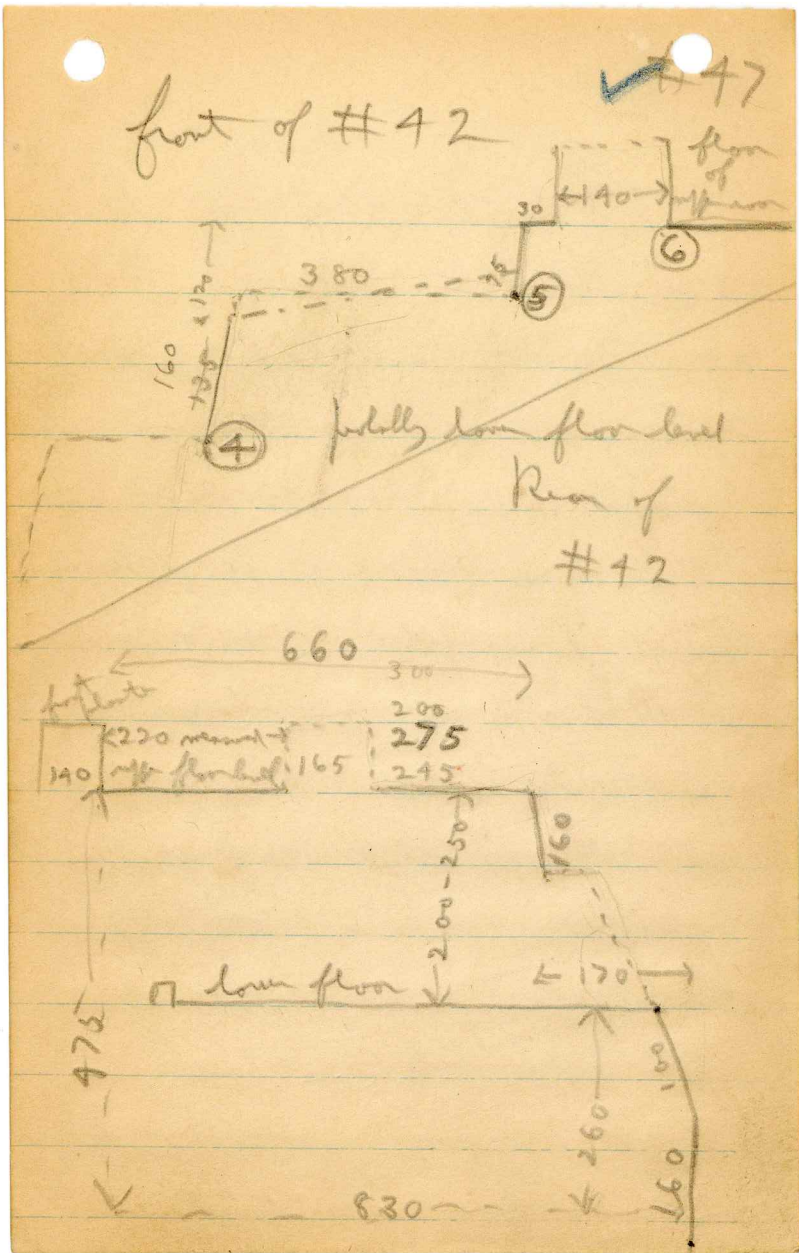 #47
front of #42
floor
of
upper room
30
140
6
380
75
5
120
160
4
probably lower floor level
Rear of
#42
660
300
200
275
245
fireplace
220 measured
upper floor level
165
140
200-250
160
170
lower floor
475
100
260
160
830